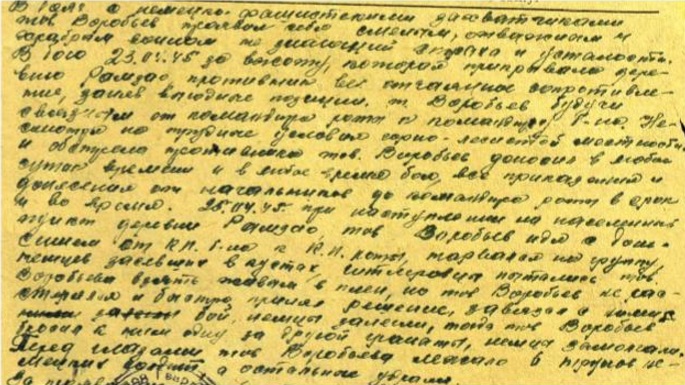 В боях с немецко-фашистскими захватчиками
тов Воробьев проявил себя смелым, отважным и
храбрым воином не знающий страха и усталости.
В бою 23.04.45 за высоту, которая прикрывала дере-
вню Рамзао, противник вел отчаянное сопротивле-
ние, заняв выгодные позиции. т. Воробьев будучи
связным от командира роты к командиру б-на. Не-
смотря на трудные условия горно-лесистой местности
и обстрела противника тов. Воробьев доносил в любое
суток времени и в любое время боя, все приказания и
донесения от начальников до командира роты в срок
и во время. 25.04.45. при наступлении на населенный
пункт деревни Рамзао тов Воробьев идя с доне-
сением от К.П. б-на к К.П. роты, нарвался на группу
немцев засевших в кустах, гитлеровцы пытались тов.
Воробьева взять живым в плен, но тов Воробьев не рас-
терялся и быстро принял решение, завязал с ними
бой, немцы залегли, тогда тов Воробьев
бросил к ним одну за другой гранаты, немцы замолчали.
Перед глазами тов Воробьева лежало 6 трупов не-
мецких солдат, а остальные удрали.
За